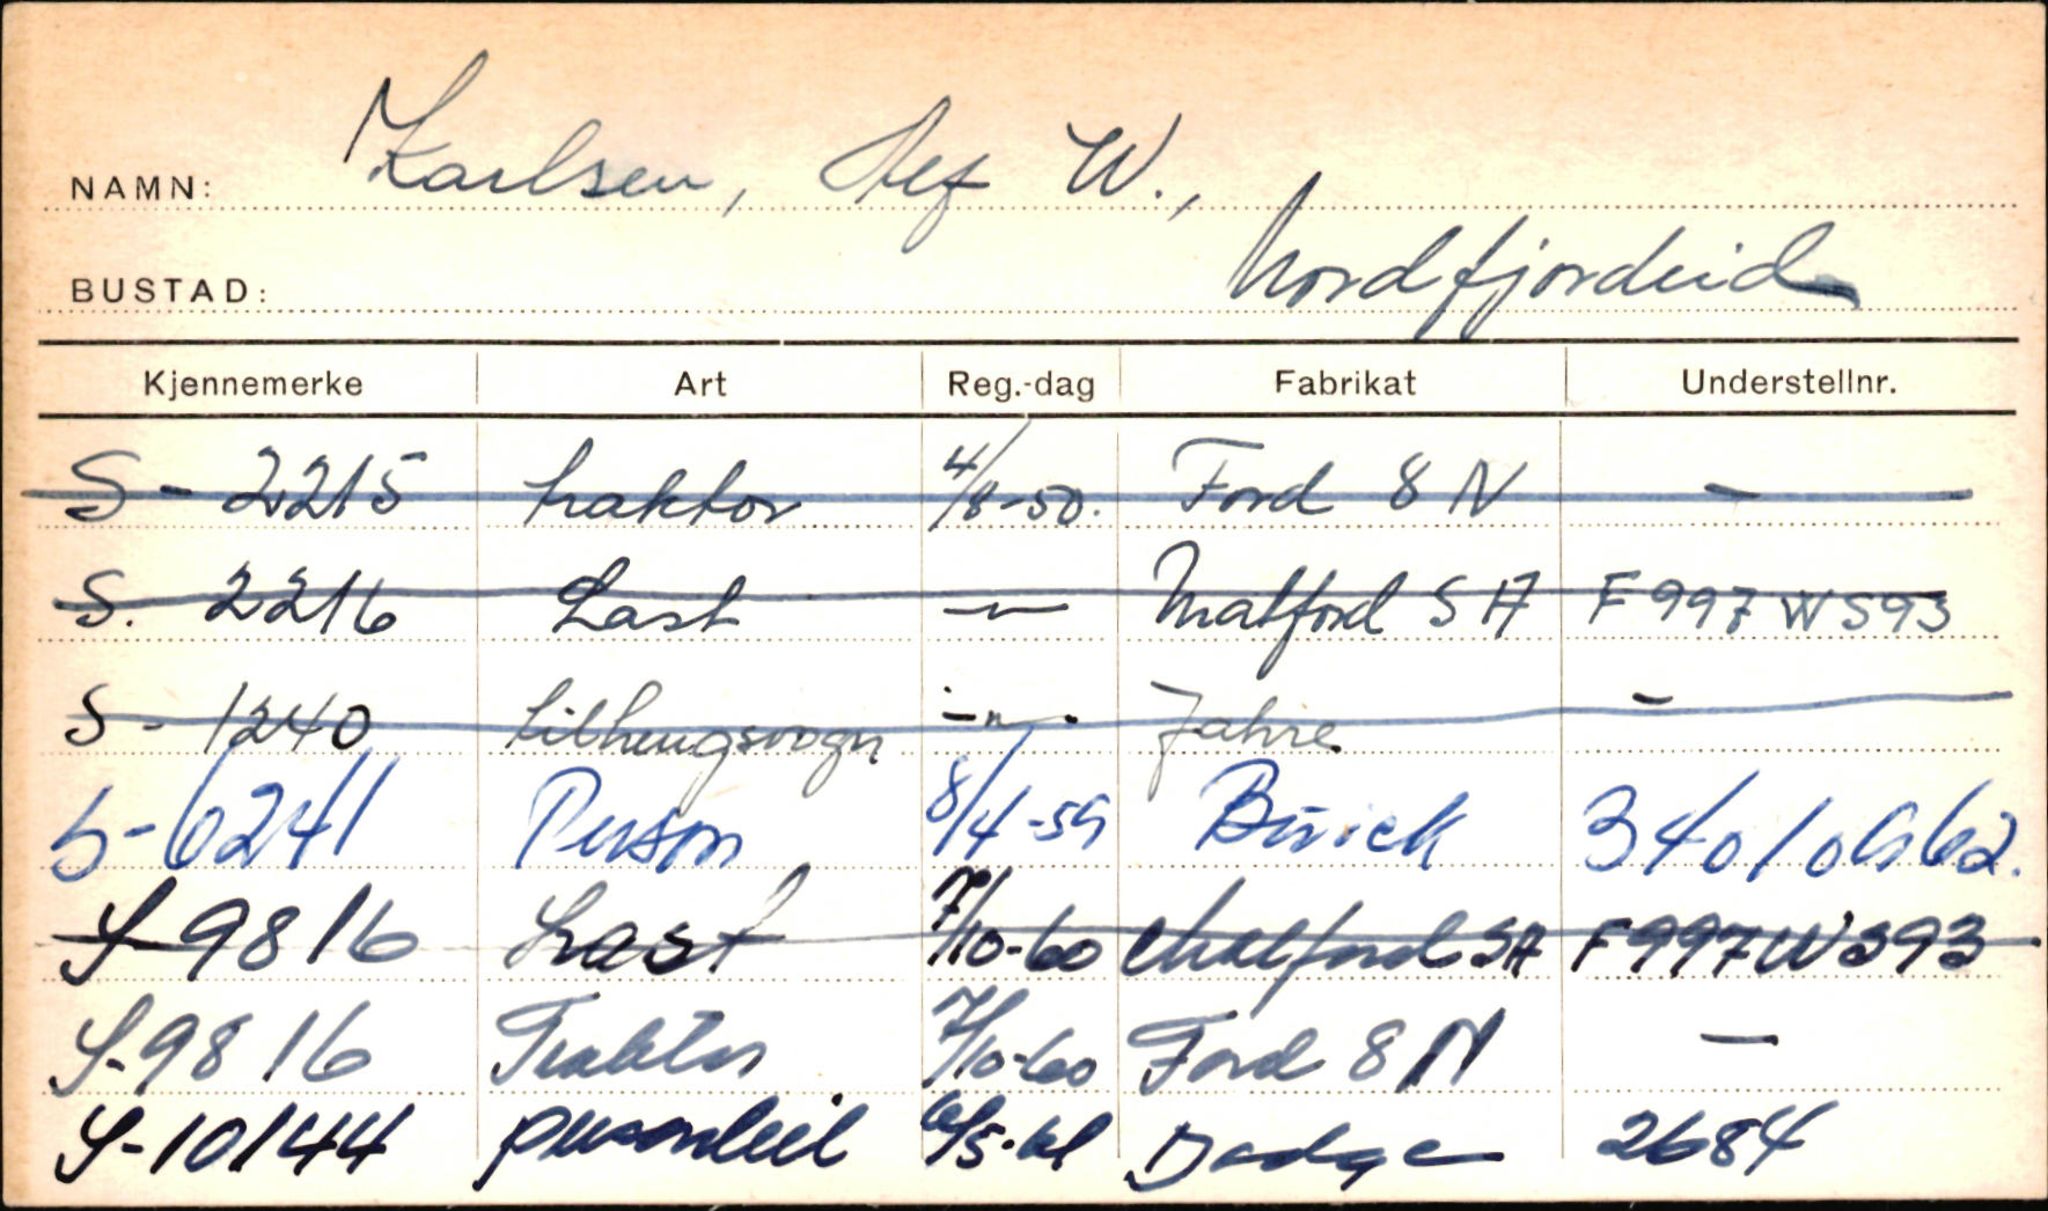 NAMN: Karlsen, W.,
BUSTAD: Nordfjordeid
Kjennemerke Art Reg.-dag Fabrikat Understellnr.
S - 2215 traktor 4/8-50. Ford 8 N —
S. 2216 Last —"— Matford SA F997WS93
S - 1240 tilhengsvogn —"— Jahre —
S-6241 Person 8/4-59 Buick 34010962.
S-9816 Last 7/10-60 Matford SA F997WS93
S-9816 Traktor 7/10-60 Ford 8 N —
S-10144 personbil 6/5-61 Dodge 2684